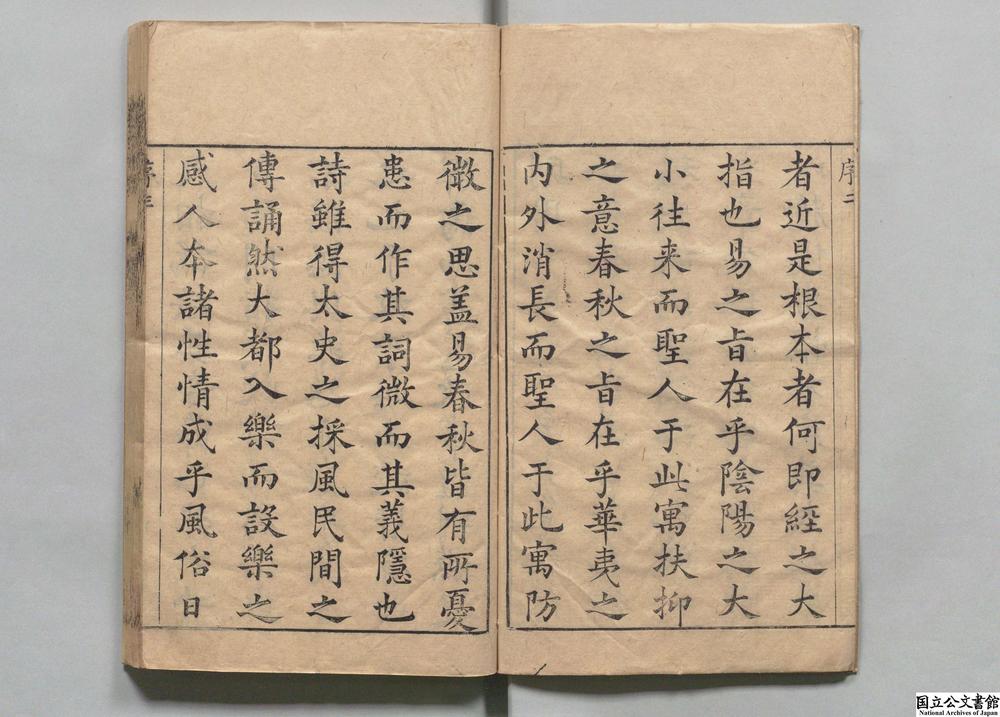 序二
者近是根本者何即經之大
指也易之旨在乎陰陽之大
小往来而聖人于此寓扶抑
之意春秋之旨在乎華夷之
内外消長而聖人于此寓防
微之思盖易春秋皆有所憂
患而作其詞微而其義隱也
詩雖得太史之採風民間之
傳誦然大都入樂而設樂之
感人本諸性情成乎風俗日
序
国立公文書館
National Archives of Japan